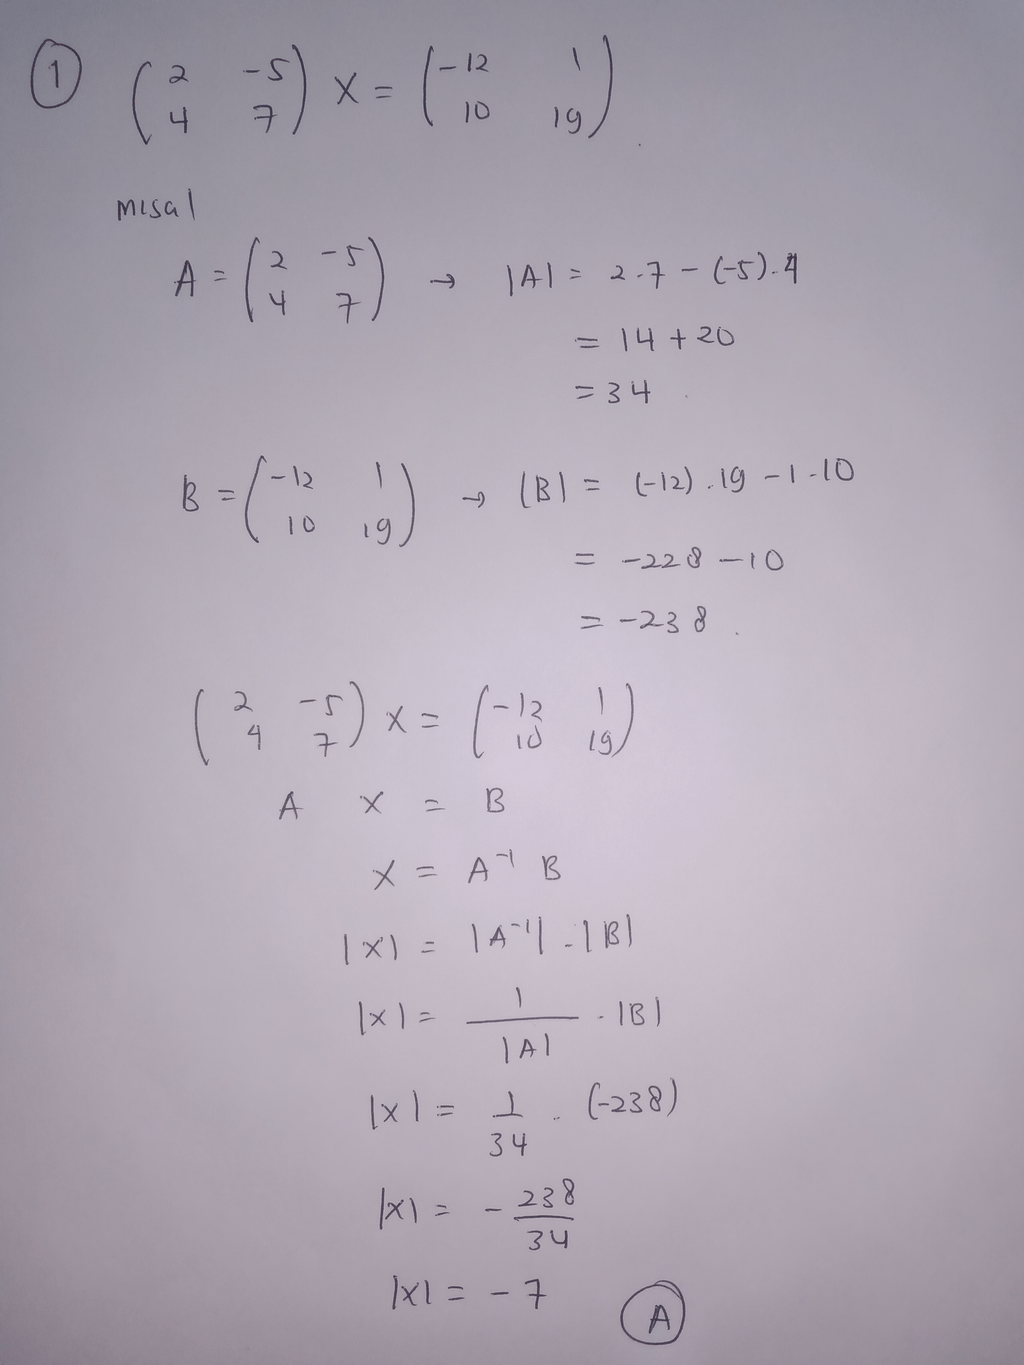 ① ( 2 -5 ) X = ( -12 1 )
( 4 7 ) ( 10 19 )
misal
A = ( 2 -5 ) → |A| = 2.7 - (-5).4
( 4 7 )
= 14 + 20
= 34
B = ( -12 1 ) → |B| = (-12).19 - 1.10
( 10 19 )
= -228 - 10
= -238.
( 2 -5 ) X = ( -12 1 )
( 4 7 ) ( 10 19 )
A X = B
X = A⁻¹ B
|X| = |A⁻¹| . |B|
|X| = 1/|A| . |B|
|X| = 1/34 . (-238)
|X| = - 238/34
|X| = - 7
Ⓐ